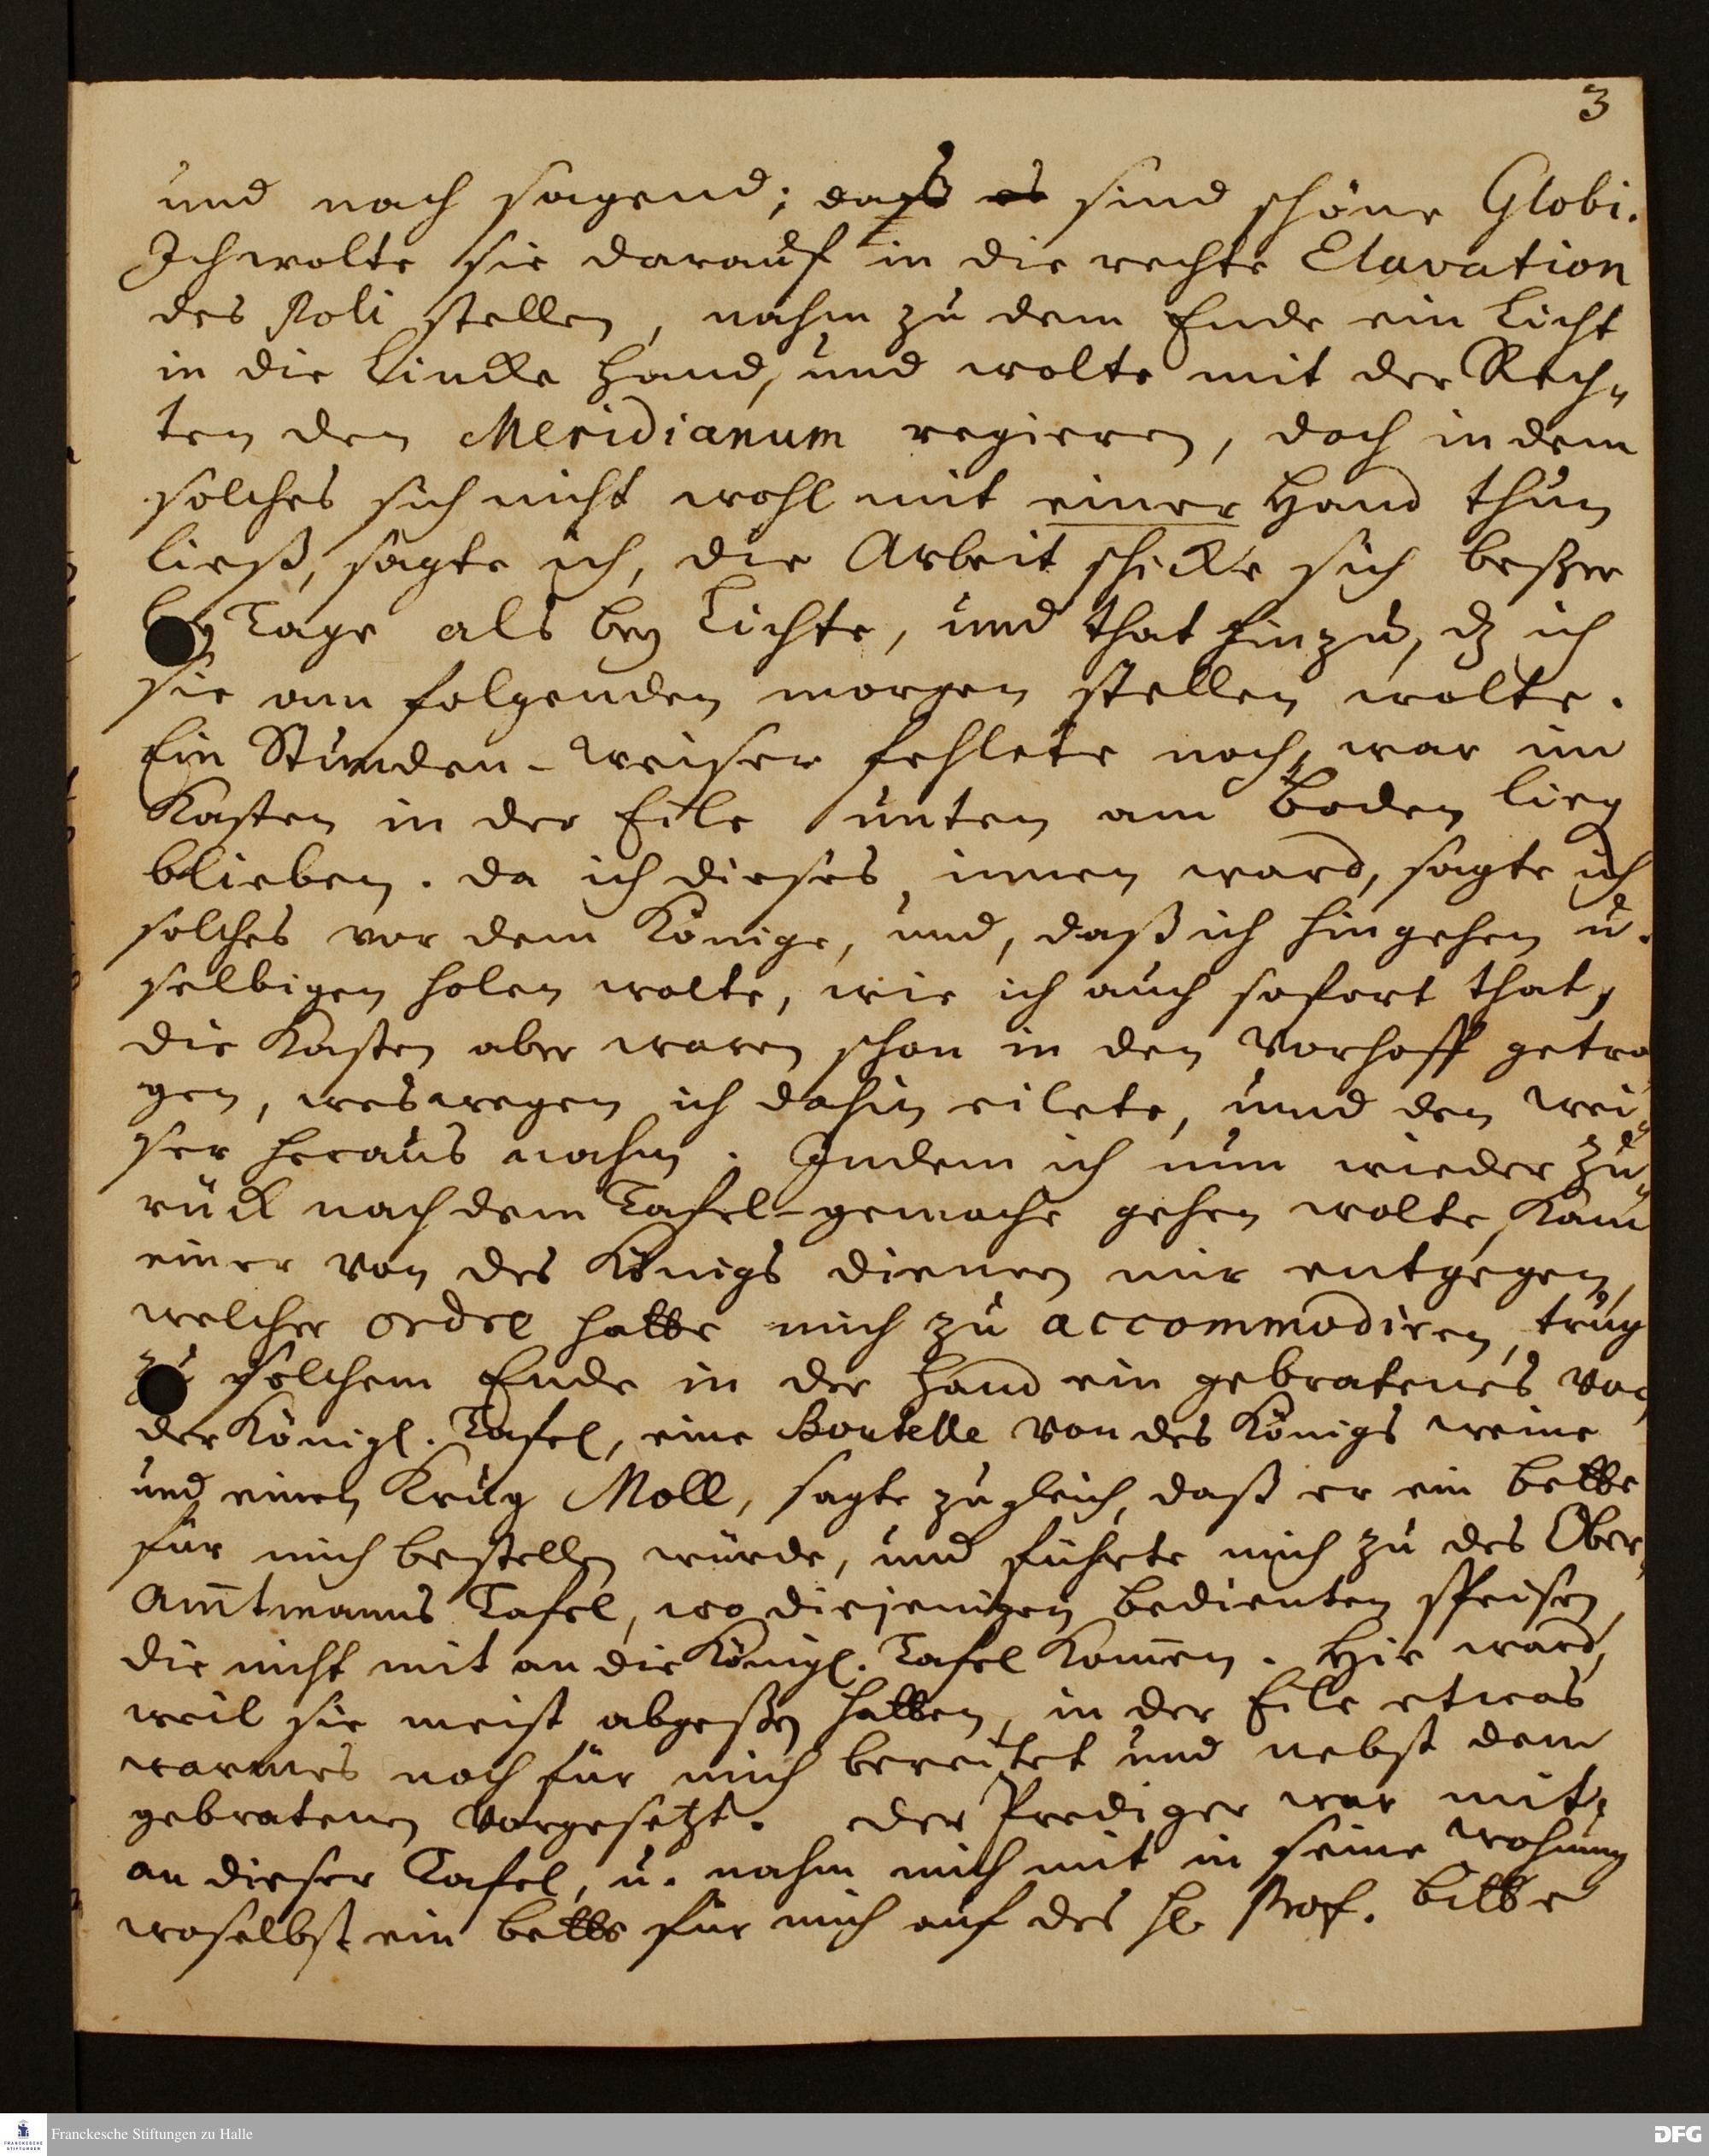 3
und nach sagend; das es sind schöne Globi.
Ich wolte sie darauf in die rechte Elavation
des Poli stellen, nahm zu dem Ende ein Licht
in die Lincke Hand, und wolte mit der Rech-
ten den Meridianum regieren, doch in dem
solches sich nicht wohl mit einer Hand thun
ließ, sagte ich, die Arbeit schicke sich beßer
bey Tage als bey Lichte, und that hinzu, dz ich
sie am folgenden morgen stellen wolte.
Ein Stunden-Weiser fehlete noch, war im
Kasten in der Eile unten am Boden lieg
blieben. da ich dieses innen ward, sagte ich
solches vor dem Könige, und, daß ich hingehen u.
selbigen holen wolte, wie ich auch sofort that,
die Kasten aber waren schon in den Vorhoff getra
gen, weswegen ich dahin eilete, und den Wei-
ser heraus nahm. Indem ich nun wieder zu-
rück nach dem Tafel-gemache gehen wolte, kam
einer von des Königs dienern mir entgegen,
welcher ordre hatte mich zu accommodiren, trug
zu solchem Ende in der Hand ein gebratenes von
der Königl. Tafel, eine Boutelle von des Königs weine
und einen Krug Moll, sagte zugleich, daß er ein bette
für mich bestellen würde, und führte mich zu des Ober-
Am̅tmanns Tafel, wo diejenigen bedienten speisen,
die nicht mit an die Königl. Tafel kom̅en. Hie ward,
weil sie meist abgeßen hatten, in der Eile etwas
warmes noch für mich bereitet und nebst dem
gebratenen vorgesetzt. der Prediger war mit
an dieser Tafel, u. nahm mich mit in seine Wohnung
woselbst ein bette für mich auf des H. Prof. bitte
Franckesche Stiftungen zu Halle
FRANCKESCHE STIFTUNGEN
DFG